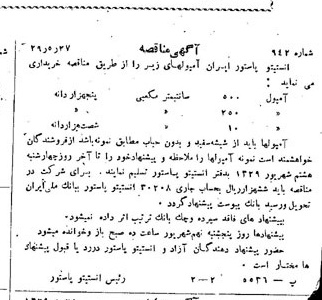 شماره ۹۴۲ آگهی مناقصه ۲۹٫۵٫۲۷
انستیتو پاستور ایران آمپولهای زیر را از طریق مناقصه خریداری
می نماید :
آمپول ۵۰۰ سانتیمتر مکعبی پنجهزاردانه
» ۲۵۰ » »
» ۱۰ » شصت‌هزاردانه
آمپولها باید از شیشه سفید و بدون حباب مطابق نمونه باشد ازفروشندگان
خواهشمند است نمونه آمپولها را ملاحظه و پیشنهاد خود را تا آخر روز چهارشنبه
هشتم شهریور ۱۳۲۹ بدفتر انستیتو پاستور تسلیم نمایند . برای شرکت در
مناقصه باید ششهزارریال بحساب جاری ۳۰۲۰۸ انستیتو پاستور ببانک ملی ایران
تحویل ورسید بانک پیوست پیشنهاد گردد .
بپیشنهاد های فاقد سپرده وچک بانک ترتیب اثر داده نمیشود.
پیشنهادها روز پنجشنبه نهم شهریور ساعت ده صبح باز وخوانده میشود
حضور پیشنهاد دهندگان آزاد و انستیتو پاستور دررد یا قبول پیشنهاد
ها مختار است .
پ – ۵۵۳۶ ۲–۲ رئیس انستیتو پاستور